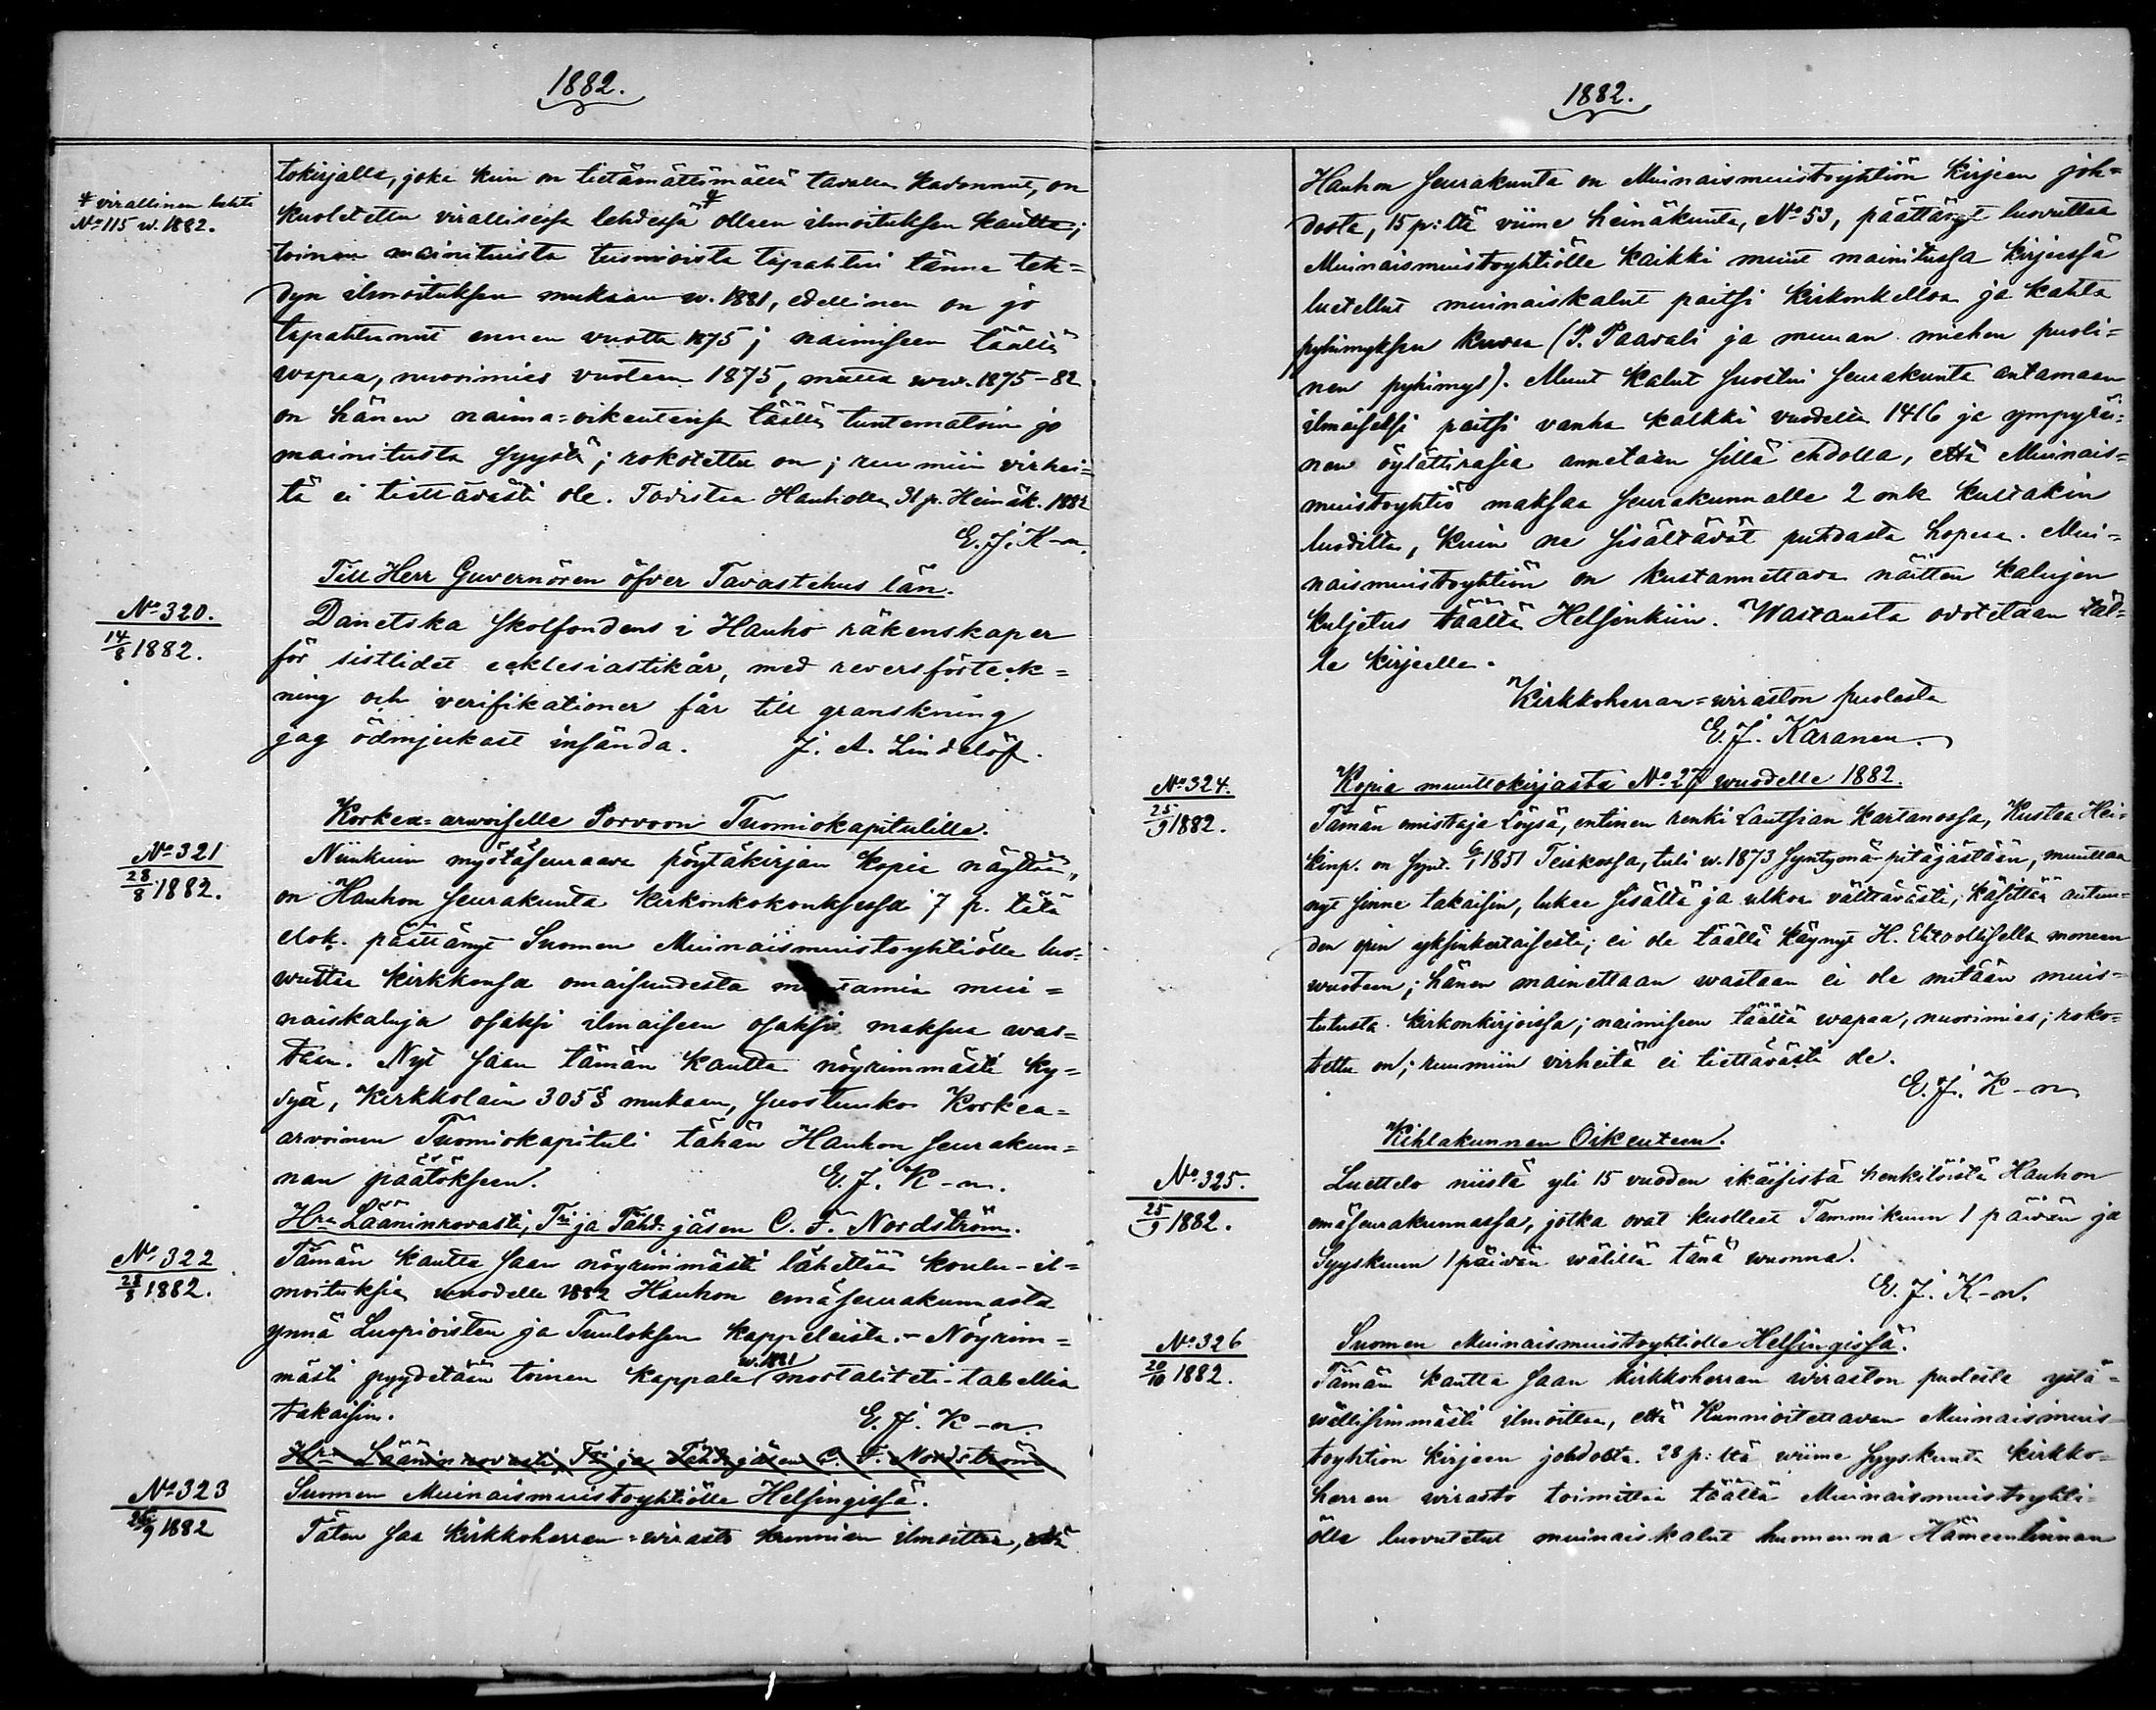 1882.
# virallinen lehti
No 115 w. 1882.
tokirjalla, joka kun on tietämättömällä tavalla kadonnut, on
kuoletettu virallisessa lehdessä # ollaen ilmoituksen kautta;
toinen mainituista tusmioista tapahtui tänne teh=
dyn ilmoituksen mukaan w. 1881, edellinen on jo
tapahtunut ennen vuotta 1875; naimiseen täällä
wapaa, nuorimies vuoteen 1875, mutta ww. 1875-82
on hänen naima=oikeutensa täällä tuntematoin jo
mainitusta syystä; rokotettu on; ruumiin virhei=
tä ei tiettävästi ole. Todistaa Hauholla 31 p. Heinäk. 1882
E. J. K-n.
Till Herr Guvernören öfver Tavastehus län.
No 320.
14/8 1882.
Danetska skolfondens i Hauho räkenskaper
för sistlidet ecklesiastikår, med reversförteck=
ning och verifikationer får till granskning
jag ödmjukast insända. J. A. Lindelöf.
Korkea=arwoiselle Porvoon Tuomiokapitulille.
No 321
28/8 1882.
Niinkuin myötäseuraava pöytäkirjan kopia näyttää,
on Hauhon seurakunta kirkonkokouksessa 7 p. tätä
elok. päättänyt Suomen Muinaismuistoyhtiölle luo=
wuttaa kirkkonsa omaisuudesta muutamia mui=
naiskaluja osaksi ilmaiseen osaksi maksua was=
taan. Nyt saan tämän kautta nöyrimmästi ky=
syä, Kirkkolain 305 § mukaan, suostuuko Korkea=
arvoinen Tuomiokapituli tähän Hauhon seurakun=
nan päätökseen. E. J. K-n.
Hra Lääninrovasti, Tri ja Tähd. jäsen C. F. Nordström.
No 322
28/8 1882.
Tämän kautta saan nöyrimmästi lähettää koulu-il=
moituksia wuodelle 1882 Hauhon emäseurakunnasta
ynnä Luopioisten ja Tuuloksen kappeleista. - Nöyrim=
mästi pyydetään toinen kappale w. 1881 mortaliteti-tabellia
takaisin. E. J. K-n.
Hra Lääninrovasti, Tri ja Tähd. jäsen C. F. Nordström
No 323
25/9 1882
Suomen Muinaismuistoyhtiölle Helsingissä.
Täten saa kirkkoherran=wirasto kunnian ilmoittaa, että
1882.
Hauhon seurakunta on Muinaismuistoyhtiön kirjeen joh=
dosta, 15 p:ltä viime heinäkuuta, No 53, päättänyt luovuttaa
Muinaismuistoyhtiölle kaikki muut mainitussa kirjeessä
luetellut muinaiskalut paitsi kirkonkelloa ja kahta
pyhimyksen kuvaa (P. Paavali ja muuan miehen puoli=
nen pyhimys). Muut kalut suostui seurakunta antamaan
ilmaiseksi paitsi vanha kalkki vuodelta 1416 ja ympyräi=
nen öylättirasia annetaan sillä ehdolla, että Muinais=
muistoyhtiö maksaa seurakunnalle 2 mk kustakin
luodilta, kuin ne sisältävät puhdasta hopeaa. Mui=
naismuistoyhtiön on kustannettava näitten kalujen
kuljetus täältä Helsinkiin. Wastausta odotetaan täl=
le kirjeelle.
Kirkkoherran=wiraston puolesta
E. J. Karanen.
No 324.
25/9 1882.
Kopia muuttokirjasta No 27 wuodelle 1882.
Tämän omistaja Löysä, entinen renki Lautsian kartanossa, Kustaa Hei=
kinp. on synt. 6/1 1851 Teiskossa, tuli w. 1873 syntymä-pitäjästään, muuttaa
nyt sinne takaisin, lukee sisältä ja ulkoa välttävästi, käsittää autuu=
den opin yksinkertaisesti; ei ole täällä käynyt H. Ehtoollisella moneen
wuoteen; hänen mainettaan wastaan ei ole mitään muis=
tutusta kirkonkirjoissa; naimiseen täältä wapaa, nuorimies; roko=
tettu on; ruumiin virheitä ei tiettävästi ole.
E. J. K-n
Kihlakunnan Oikeuteen.
No 325.
25/9 1882.
Luettelo niistä yli 15 vuoden ikäisistä henkilöistä Hauhon
emäseurakunnassa, jotka ovat kuolleet Tammikuun 1 päivän ja
Syyskuun 1 päivän wälillä tänä wuonna.
E. J. K-n.
No 326
20/10 1882.
Suomen Muinaismuistoyhtiölle Helsingissä.
Tämän kautta saan kirkkoherran wiraston puolesta ystä=
wällisimmästi ilmoittaa, että Kunnioitettavan Muinaismuis=
toyhtiön kirjeen johdosta 28 p:ltä wiime syyskuuta kirkko=
herran wirasto toimittaa täältä Muinaismuistoyhti=
ölle luovutetut muinaiskalut huomenna Hämeenlinnan